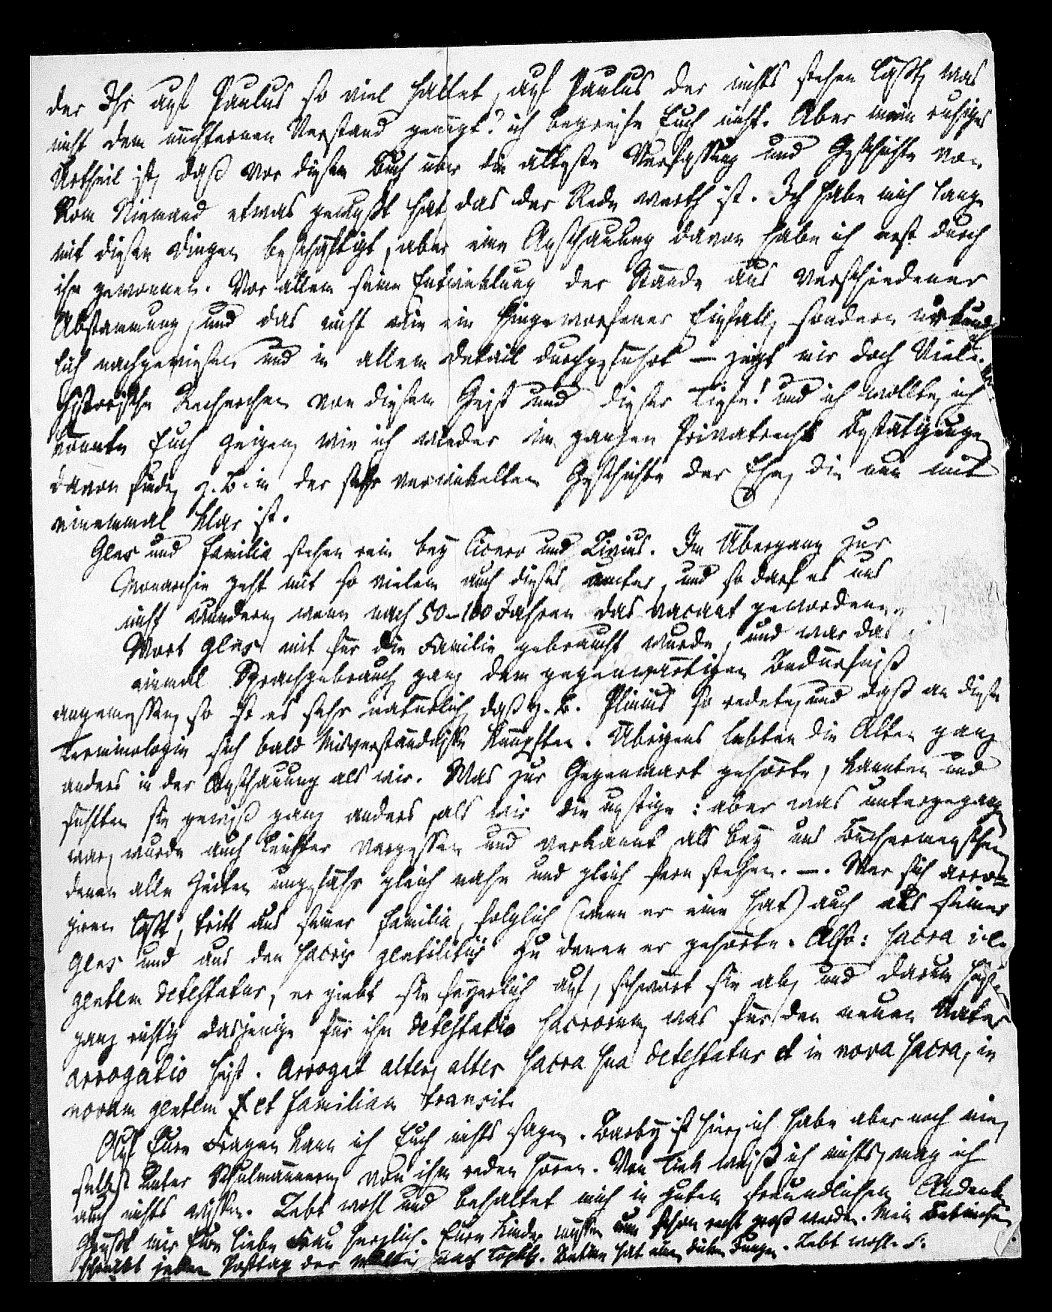 der Ihr auf Paulus so viel haltet, auf Paulus der nichts stehen läßt, was
nicht dem nüchternen Verstand genügt? ich begreife Euch nicht. Aber mein ruhiges
Urtheil ist, daß vor diesem Buch über die älteste Verfassung und Geschichte von
Rom Niemand etwas gewußt hat das der Rede werth ist. Ich habe mich lange
mit diesen Dingen beschäftigt, aber eine Anschauung davon habe ich erst durch
ihn gewonnen. Vor allem seine Entwicklung der Stände aus verschiedener
Abstammung, und das nicht wie ein hingeworfener Einfall, sondern urkund
lich nachgewiesen und in allem Detail durchgeführt – zeigt mir doch Viele
historische Recherchen von diesem Geist und dieser Tiefe! und ich wollte, ich
könnte Euch zeigen, wie ich wieder im ganzen Privatrecht Bestätigungen
davon finde, z. B. in der sehr verwickelten Geschichte der Ehe, die nun mit
einemmal klar ist.
Gens und familia stehen rein bey Cicero und Livius. Im Übergang zur
Monarchie geht mit so vielem auch dieses unter, und so darf es uns
nicht wundern, wenn nach 50–100 Jahren das vacant gewordene
Wort gens mit für die Familie gebraucht wurde, und war das
einmal Sprachgebrauch, ganz dem gegenwärtigen Bedürfniß
angemessen, so ist es sehr natürlich, daß z. B. Plinius so redete, und daß an diese
Terminologie sich bald Misverständnisse knüpften. Übrigens lebten die Alten ganz
anders in der Anschauung als wir. Was zur Gegenwart gehörte, kannten und
fühlten sie gewiß ganz anders, als wir die unsrige: aber was untergegangen
war, wurde auch leichter vergessen und verkannt als bey uns Büchermenschen,
denen alle Zeiten ungefähr gleich nahe und gleich fern stehen. –. Wer sich arro=
giren läßt, tritt aus seiner familia, folglich (wenn er eine hat) auch aus seiner
gens und aus den sacris gentilitiis zu denen er gehörte. Also: sacra ille
gentem detestatur, er giebt sie feyerlich auf, schwört sie ab, und darum heißt
ganz richtig dasjenige für ihn detestatio sacrorum, was für den neuen Vater
arrogatio heißt. Arrogat alter, alter sacra sua detestatur et in nova sacra, in
novam gentem et familiam transit.
Auf Eure Fragen kann ich Euch nichts sagen. Barby ist hier, ich habe aber noch nie,
selbst unter Schulmännern von ihm reden hören. Von Tieck weiß ich nichts, mag ich
auch nichts wissen. Lebt wohl und behaltet mich in gutem freundlichen Andenken
Grüßt mir Eure liebe Frau herzlich. Eure Kinder müssen nun schon recht groß werden. Mein
schreibt jeden Posttag der nach. hat einen dicken Jungen. Lebt wohl. S.